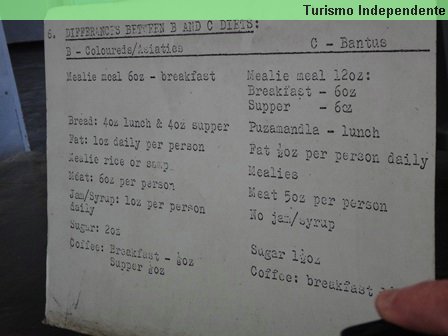 Turismo Independente
6. DIFFERANCES BETWEEN B AND C DIETS:
B - Coloureds/Asiatics C - Bantus
Mealie meal 6oz - breakfast Mealie meal 12oz:
Breakfast - 6oz
Supper - 6oz
Bread: 4oz lunch & 4oz supper Puzamandla - lunch
Fat: 1oz daily per person Fat ½oz per person daily
Mealie rice or samp Mealies
Meat: 6oz per person Meat 5oz per person
Jam/Syrup: 1oz per person daily No jam/syrup
Sugar: 2oz Sugar 1½oz
Coffee: Breakfast - Coffee: breakfast
Supper